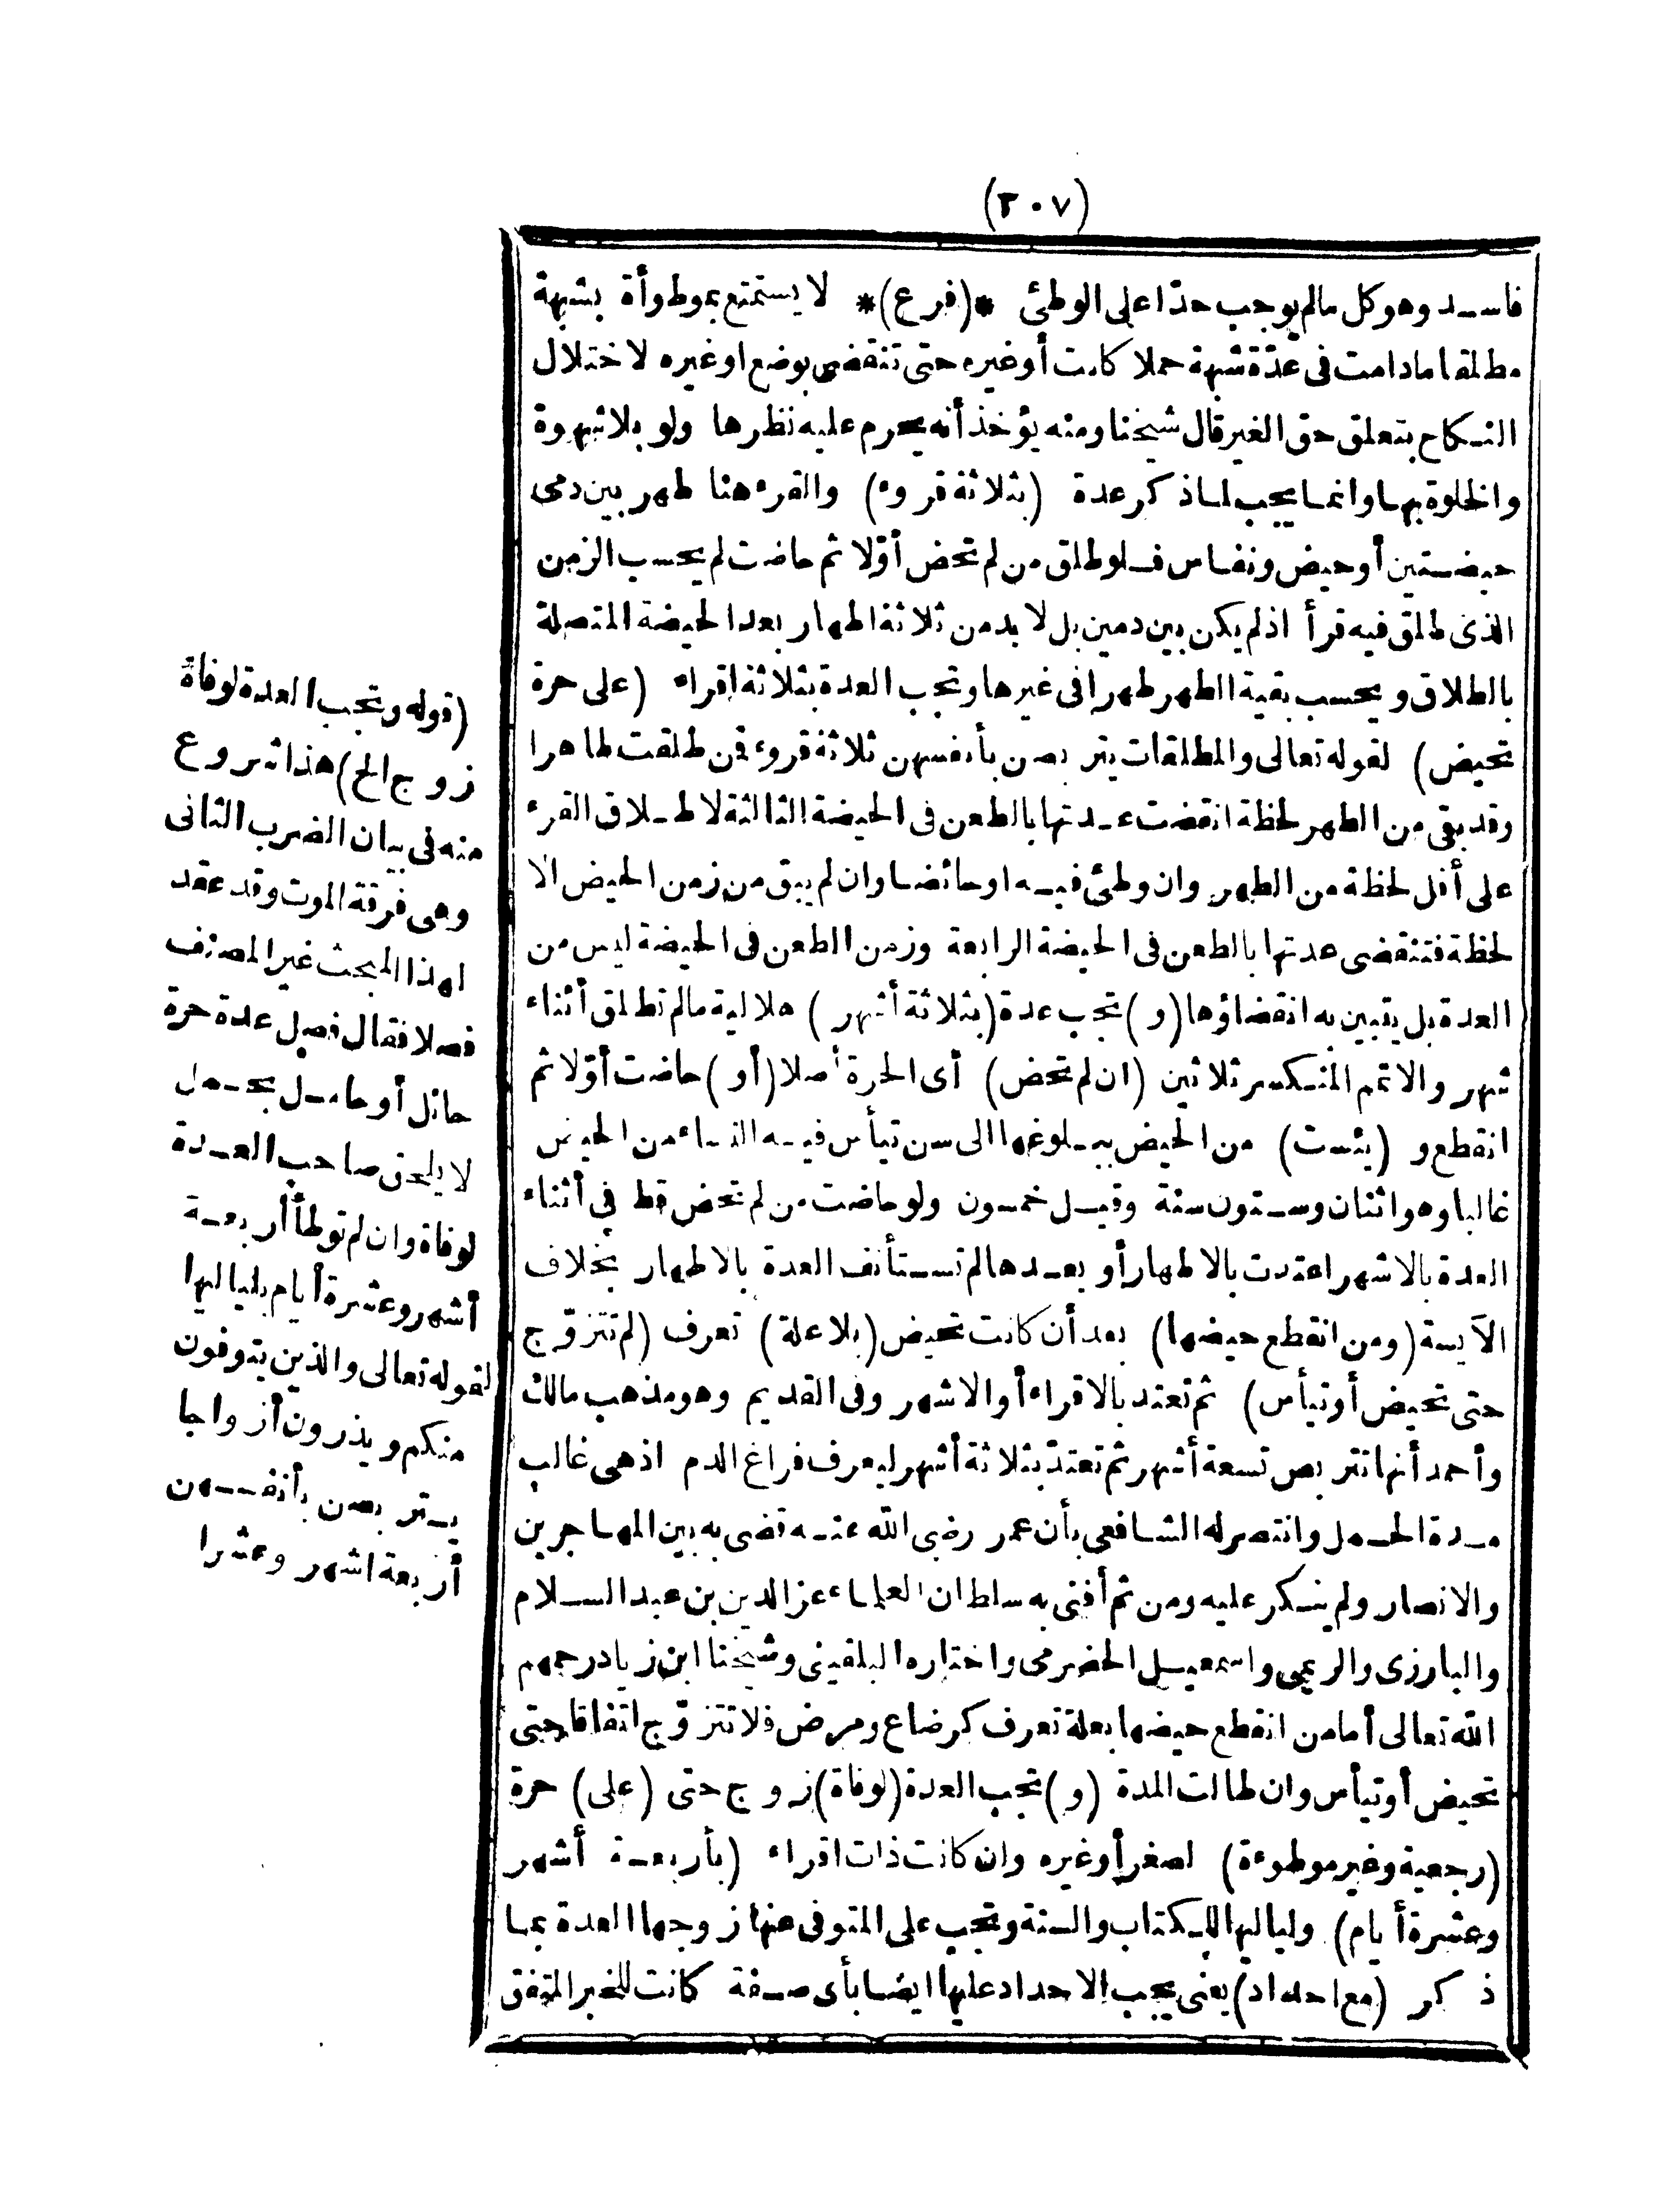 (٣٠٧)
فاسد وهو كل مالم يوجب حدّا على الوطئ *(فرع)* لا يستمتع بموطوأة بشبهة
مطلقا مادامت فى عدّة شبهة حملا كانت أو غيره حتى تنقضى بوضع او غيره لاختلال
النكاح بتعلق حق الغير قال شيخنا ومنه يؤخذ أنه يحرم عليه نظرها ولو بلا شهوة
والخلوة بها وانما يجب لما ذكر عدة (بثلاثة قروء) والقرء هنا طهر بين دمى
حيضتين أو حيض ونفاس فلو طلق من لم تحض أوّلا ثم حاضت لم يحسب الزمن
الذى طلق فيه قرأ اذ لم يكن بين دمين بل لا بد من ثلاثة اطهار بعد الحيضة المتصلة
بالطلاق ويحسب بقية الطهر طهرا فى غيرها وتجب العدة بثلاثة اقراء (على حرة
تحيض) لقوله تعالى والمطلقات يتربصن بأنفسهن ثلاثة قروء فمن طلقت طاهرا
وقد بقى من الطهر لحظة انقضت عدتها بالطعن فى الحيضة الثالثة لاطلاق القرء
على أقل لحظة من الطهر وان وطئ فيه او حائضا وان لم يبق من زمن الحيض الا
لحظة فتنقضى عدتها بالطعن فى الحيضة الرابعة وزمن الطعن فى الحيضة ليس من
العدة بل يتبين به انقضاؤها (و) تجب عدة (بثلاثة أشهر) هلالية مالم تطلق أثناء
شهر والا تمم المنكسر ثلاثين (ان لم تحض) أى الحرة أصلا (أو) حاضت أوّلا ثم
انقطع و (يئست) من الحيض ببلوغها الى سن تيأس فيه النساء من الحيض
غالبا وهو اثنان وستون سنة وقيل خمسون ولو حاضت من لم تحض قط فى أثناء
العدة بالاشهر اعتدت بالاطهار أو بعدها لم تستأنف العدة بالاطهار بخلاف
الآيسة (ومن انقطع حيضها) بعد أن كانت تحيض (بلا علة) تعرف (لم تتزوّج
حتى تحيض أو تيأس) ثم تعتد بالاقراء أو الاشهر وفى القديم وهو مذهب مالك
وأحمد أنها تتربص تسعة أشهر ثم تعتدّ بثلاثة أشهر ليعرف فراغ الدم اذ هى غالب
مدة الحمل وانتصر له الشافعى بأن عمر رضى الله عنه قضى به بين المهاجرين
والانصار ولم ينكر عليه ومن ثم أفتى به سلطان العلماء عز الدين بن عبد السلام
والبارزى والريمى واسمعيل الحضرمى واختاره البلقينى وشيخنا ابن زياد رحمهم
الله تعالى أما من انقطع حيضها بعلة تعرف كرضاع ومرض فلا تتزوّج اتفاقا حتى
تحيض أو تيأس وان طالت المدة (و) تجب العدة (لوفاة) زوج حتى (على) حرة
(رجعية وغير موطوءة) لصغر أو غيره وان كانت ذات اقراء (بأربعة أشهر
وعشرة أيام) ولياليها للكتاب والسنة وتجب على المتوفى عنها زوجها العدة بما
ذكر (مع احداد) يعنى يجب الاحداد عليها ايضا بأى صفة كانت للخبر المتفق
(قوله وتجب العدة لوفاة
زوج الخ) هذا شروع
منه فى بيان الضرب الثانى
وهى فرقة الموت وقد عقد
لهذا المبحث غير المصنف
فصلا فقال فصل عدة حرة
حائل أو حامل بحمل
لا يلحق صاحب العدة
لوفاة وان لم توطأ أربعة
أشهر وعشرة أيام بلياليها
لقوله تعالى والذين يتوفون
منكم ويذرون أزواجا
يتربصن بأنفسهن
أربعة اشهر وعشرا